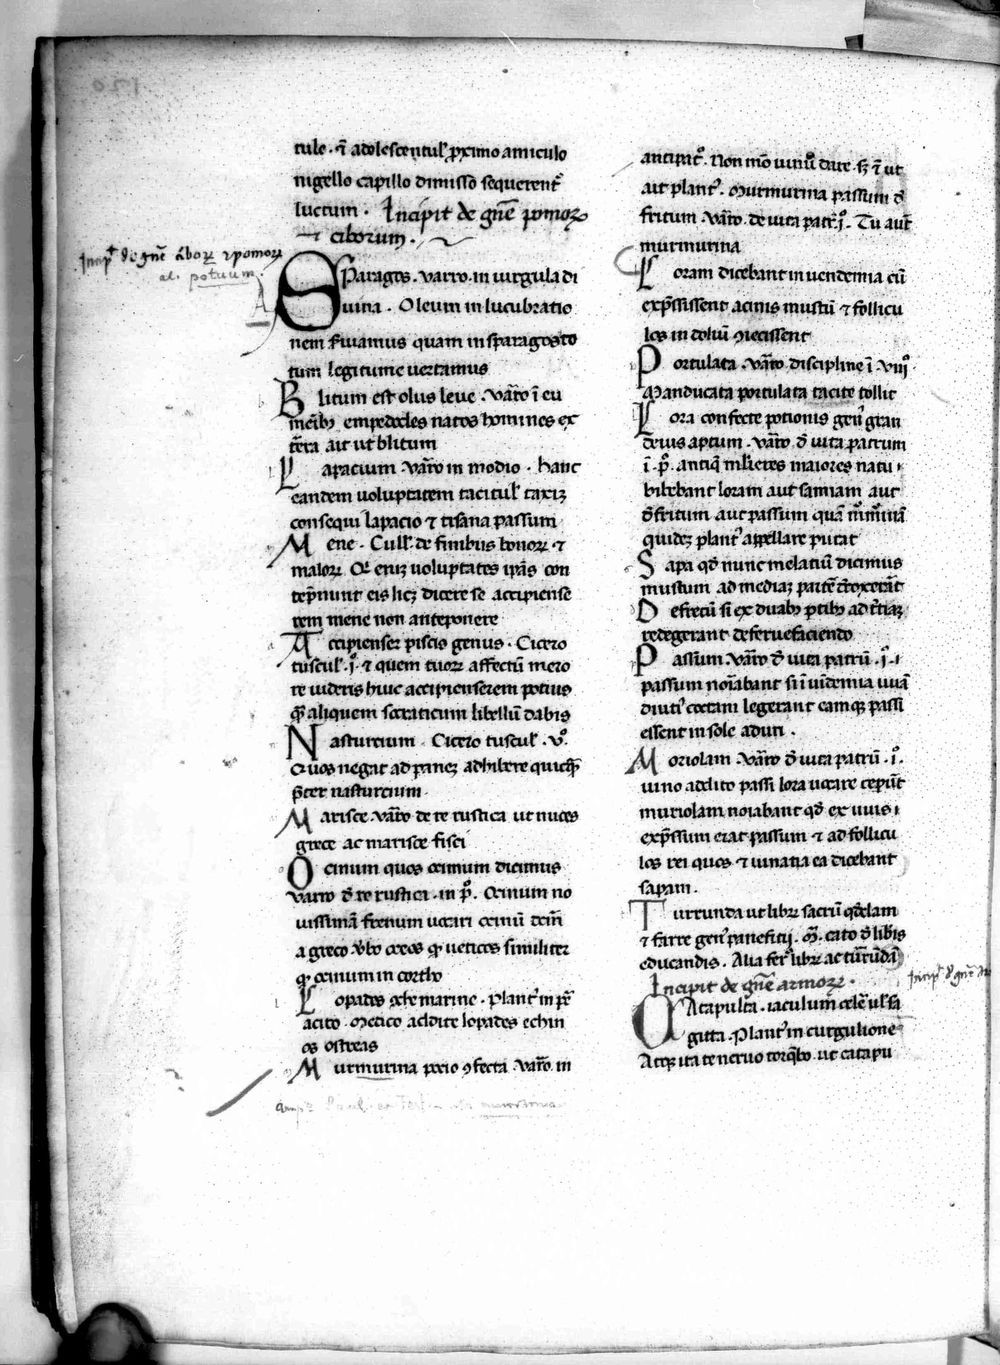 tule · ī adolescentul' ꝓximo amiculo
nigello capillo dimisso sequerent᷑
luctum · Incipit de gn̄e pomoꝝ
⁊ ciborum ·
Incip̄t de gn̄e ciboꝝ ⁊ pomoꝝ
al. potuum
SParagos · varro · in virgula di
uina · Oleum in lucubratio
nem seruamus quam in sparagos to
tum legitume uertamus
Blitum est olus leue · vaꝛ̄o ī eu
menib; empedocles natos homines ex
t̄ra ait ut blitum
Lapacium vaꝛ̄o in modio · hanc
eandem uoluptatem tacitul' taxiꝫ
consequi lapacio ⁊ tisana passum
Mene · Cull' de finibus bonoꝝ · ⁊
maloꝝ Qꝫ eniꝫ uoluptates ip̄as con
tēpnunt eis licꝫ dicere se accipiense
rem mene non anteponere
Accipienser piscis genus · Cicero
tuscul' · i̊ · ⁊ quem tuoꝝ affectū mero
re uideris huic accipienserem potius
qᷓ aliquem socraticum libellū dabis
Nasturcium · Cicero tuscul' · v̊ ·
Quos negat ad paneꝫ adhibere quicqᷓ
p̄ter nasturcium ·
Marisce vaꝛ̄o · de re rustica ut nuces
grece ac marisce fisci
Ocinum quos ocimum dicimus
varro d̄ re rustica · in p̊ · Ocinum no
uissimā frenum uocari ocimū
a greco ỽbo oceos qꝫ ueticos similiter
qꝫ ocinum in cortho
Lopades gn̄e marine · Plant᷑ in ꝑ
acito · Medico addite lopades echin
os ostreas
Murmurina pocio ꝯfecta vaꝛ̄o · in
antipat̊ · Non mō uinū dare · sꝫ ī ut
ait plant᷑ · Murmurina passum d̄
fritum · vaꝛ̄o · de uita patꝝ i̊ · Tu aut̄
murmurina
Loram dicebant in uendemia cū
exp̄ssissent acinis mustū ⁊ follicu
los in doliū ꝯiecissent
Portulata · vaꝛ̄o discipline ī viiij̊
Manducata portulata tacite tollit
Lora confecte potionis gen᷒ gran
deuis aptum · vaꝛ̄o · d̄ uita patrum
ī · p̊ · antiq̄ ml'ieres maiores natu ·
bibebant loram aut samiam aut
d̄fritum aut passum quā m̊m̊inā
quideꝫ plant᷑ appellare putat
Sapa qd̄ nunc melatiū dicimus
mustum ad mediaꝫ partē d̄coxerāt
Defretū si ex duab; ꝑtib; ad t̄tiaꝫ
redegerant deferuefaciendo
Passum · vaꝛ̄o d̄ uita patrū · i̊ ·
passum noīabant si ī uīdemia uuā
diuti᷒ coctani legerant eamqꝫ passi
essent in sole aduri ·
Moriolam vaꝛ̄o d̄ uita patrū · i̊ ·
uino addito passi lora uocare cepūt
muriolam noīabant qd̄ ex uuis ·
exp̄ssum erat passum ⁊ ad follicu
los rei quos ⁊ uinatia ea dicebant
sapam ·
Turrunda ut libꝝ sacrū qd̄dam
⁊ farre gen᷒ panefitij · M̄ · cato d̄ lib̄is
educandis · Alia fer᷑ libꝝ ac tūrūdā
Incipit de gn̄e armoꝝ ·
Incip̄t d̄ gn̄e ar
CAtapulta · iaculum celē uł sa
gitta · Plaut᷑ in curgulione
Atqꝫ ita te neruo torq̄bo · ut catapu